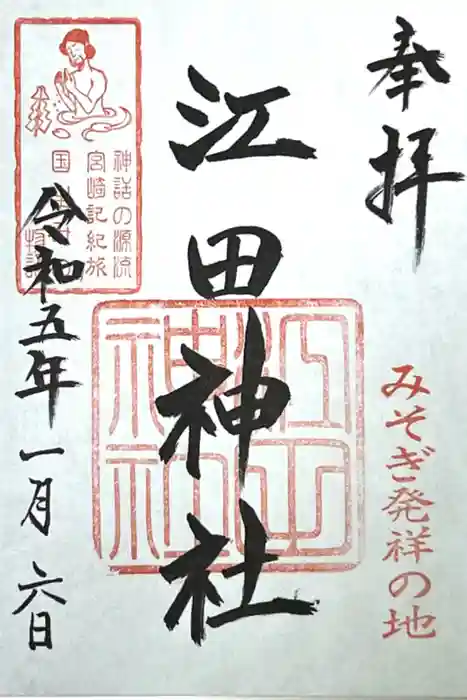 奉拝
みそぎ発祥の地
江田神社
江田神社
神話の源流
宮崎記紀旅
国
令和五年一月六日